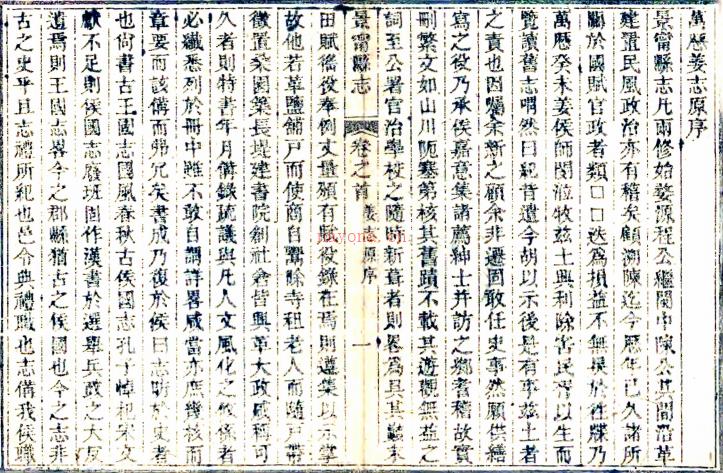 萬厯姜志原序
景甯縣志凡兩修始婺源程公繼閩中陳公其間沿革
建置民風政治亦有稽矣顧溯陳迄今歷年已久諸所
關於國賦官政者類口口迭為損益不無異於往牒乃
萬厯癸未姜侯師閔涖牧兹土興利除害民胥以生而
覽讀舊志喟然曰紀昔遺今胡以示後是有事兹土者
之責也因屬余新之顧余非遷固敢任史事然願供繕
寫之役乃承侯嘉意集諸薦紳士并訪之鄉耆稽故實
刪繁文如山川阨塞第核其舊蹟不載其遊觀無益之
詞至公署官治學校之隨時新葺者則畧為具其顛末
景甯縣志
卷之首
姜志原序
一
田賦徭役奉例丈量頒有賦役錄在焉則遵集以示掌
故他若革鹽舖戶而使商自鬻除寺租老人而隨戶帶
徵置桑園築長堤建書院創社倉皆興革大政風稱可
久者則特書年月備錄疏議與凡人文風化之攸係者
必纖悉列於冊中雖不敢自謂詳畧咸當亦庶幾核而
章要而該備而弗冗矣書成乃復於侯曰志昉於史者
也尚書古王國志國風春秋古侯國志孔子悼杞宋文
獻不足則侯國志廢班固作漢書於選舉兵食之大反
遺焉則王國志畧今之郡縣猶古之侯國也今之志非
古之史乎且志禮所紀也邑令典禮職也志備我侯職